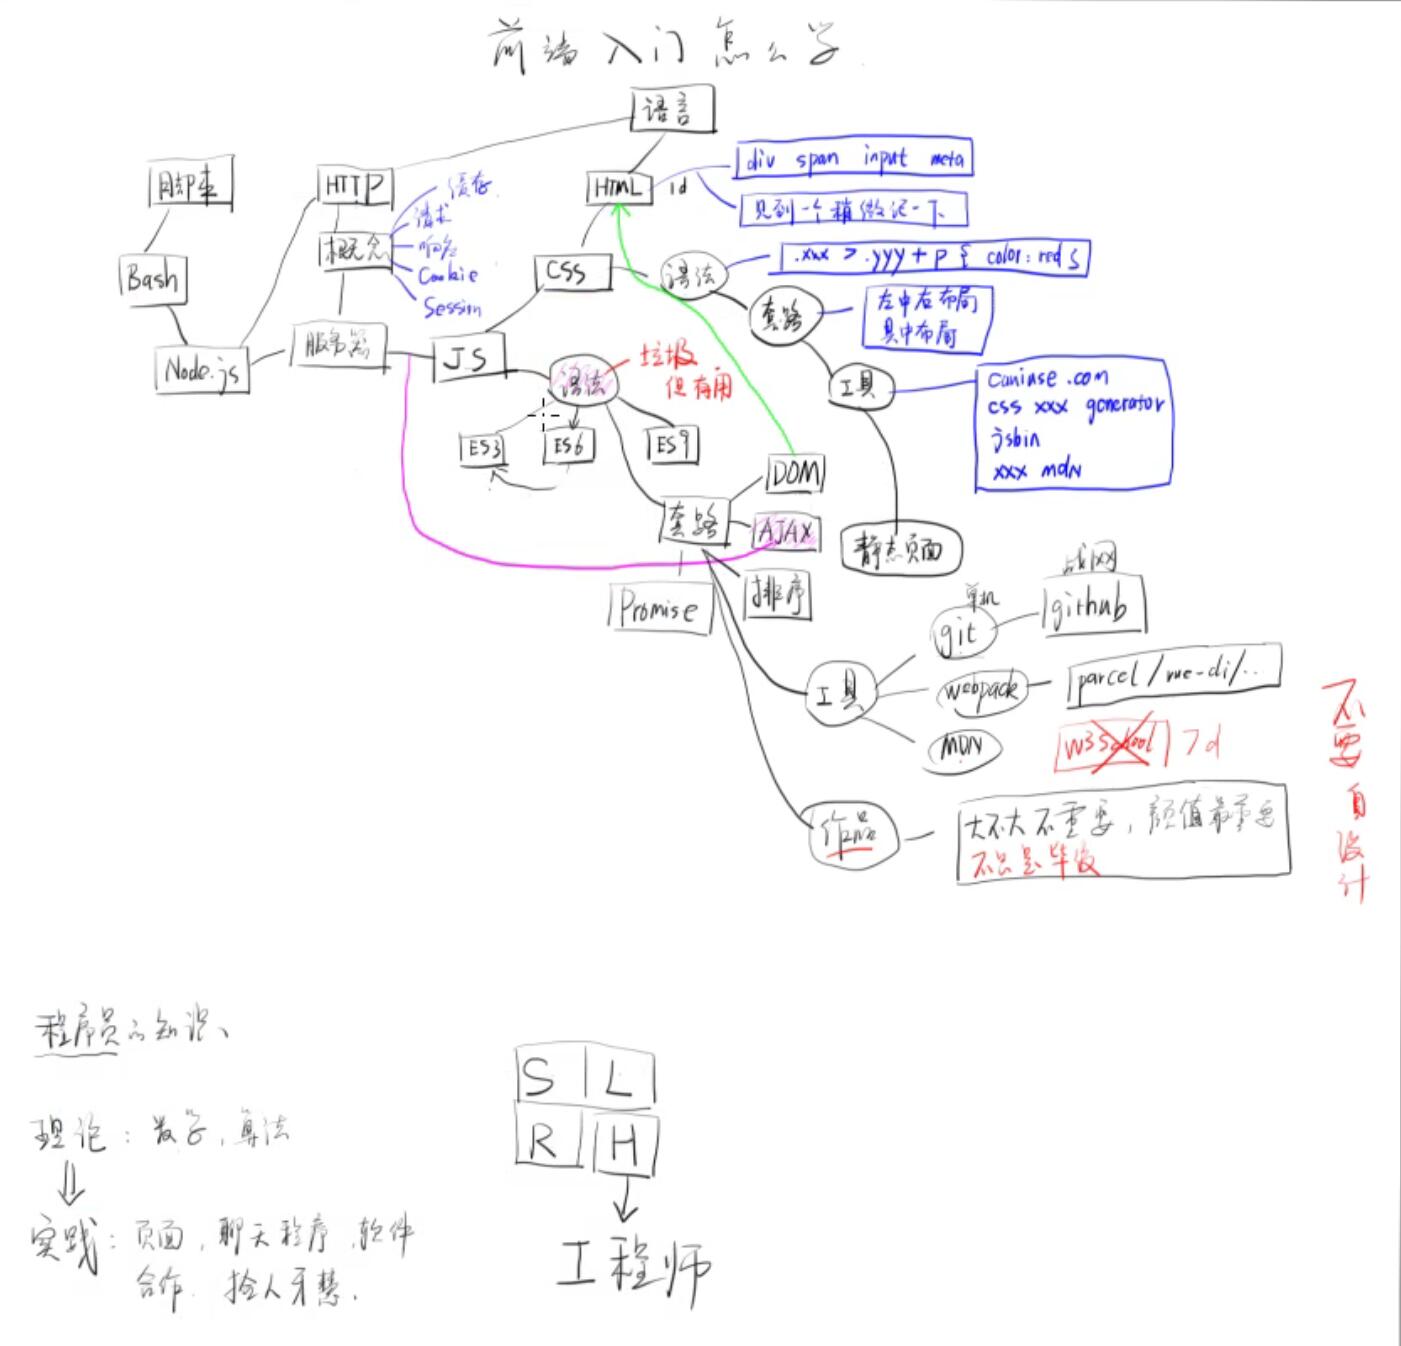 前端入门怎么学
语言
用脚本
HTTP
缓存
请求
响应
Cookie
Session
概念
HTML
1d
div span input meta
见到一个稍微记一下
Bash
CSS
语法
.xxx > .yyy + p { color: red }
套路
左中右布局
居中布局
Node.js
服务器
JS
语法
垃圾
但有用
工具
caniuse.com
css xxx generator
jsbin
xxx mdn
ES3
ES6
ES9
DOM
套路
AJAX
静态页面
Promise
排序
单机
git
战网
github
工具
webpack
parcel / vue-cli / ...
MDN
W3School
7d
作品
大不大不重要，颜值最重要
不只是毕设
不要自设计
程序员的知识、
理论：数学，算法
实践：页面，聊天程序，软件
合作 拾人牙慧.
S L
R H
工程师